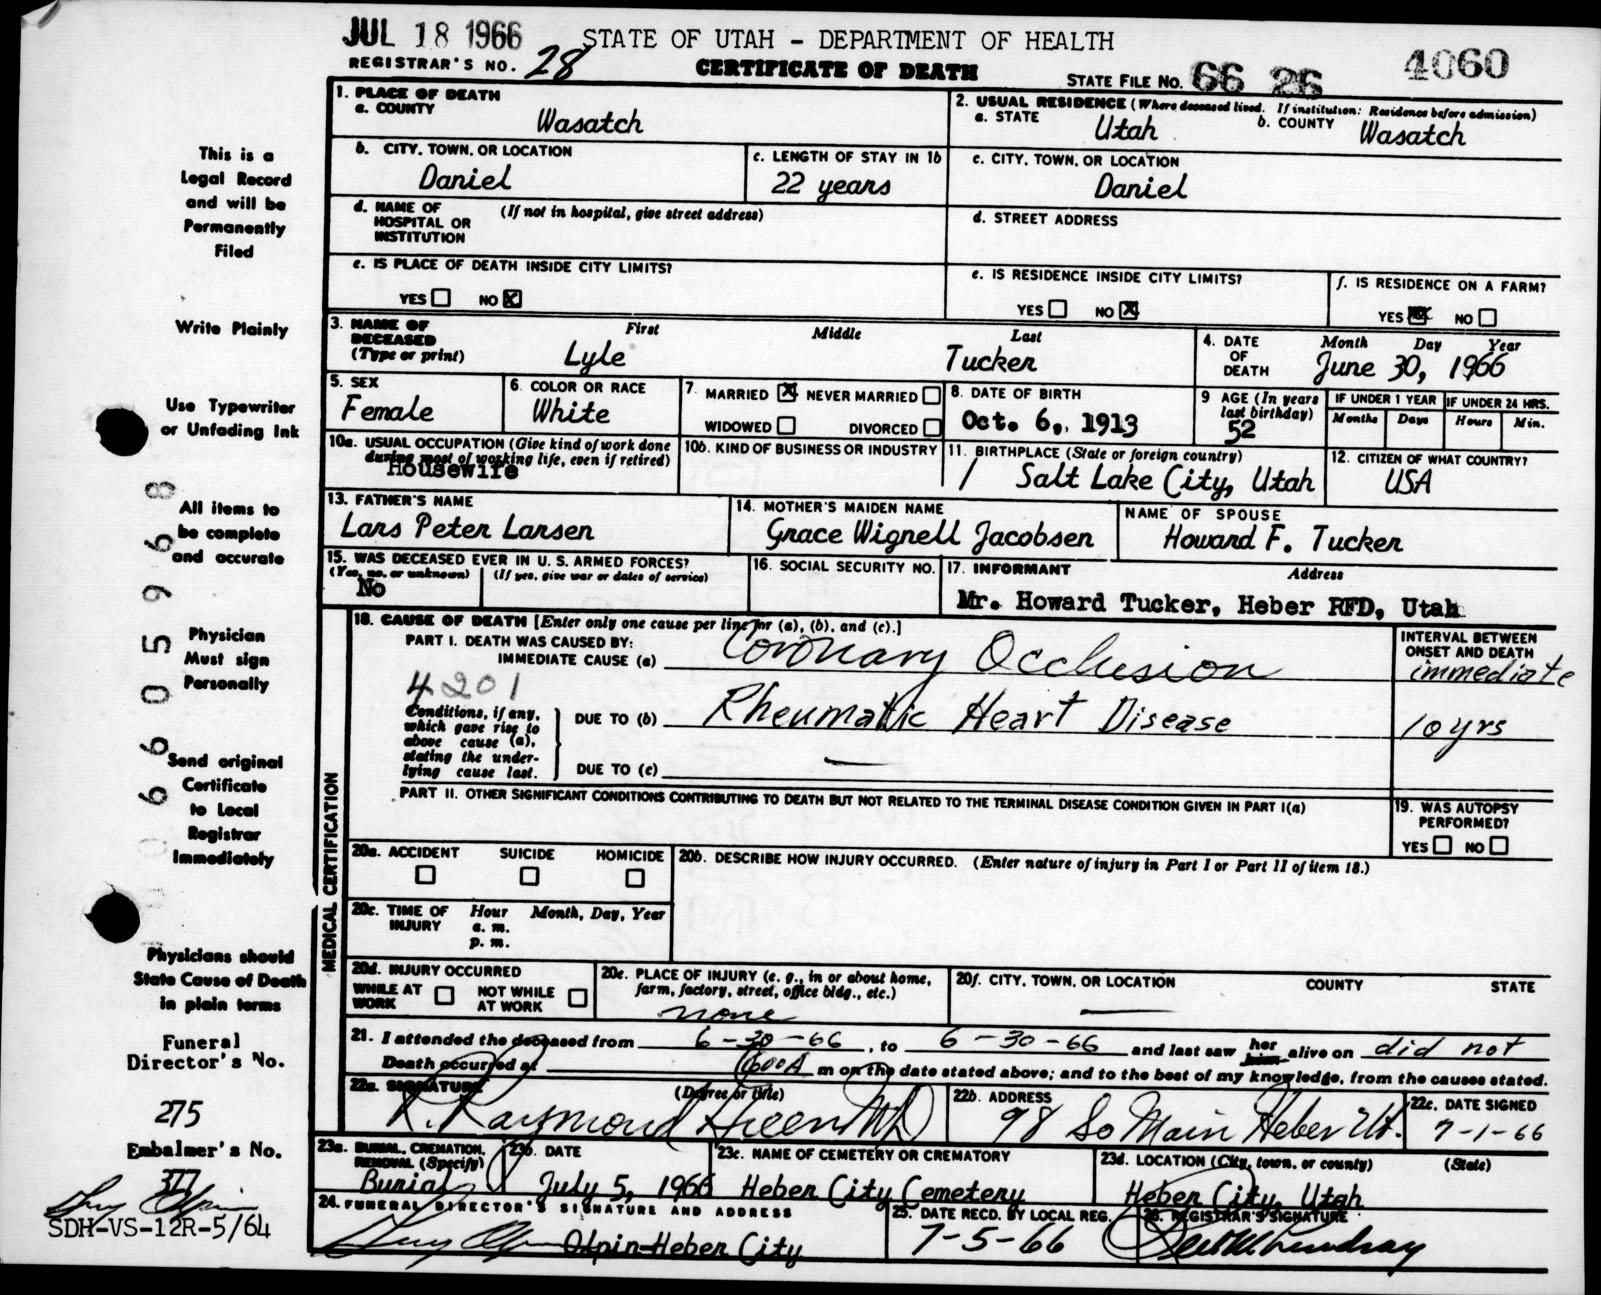 JUL 18 1966 STATE OF UTAH - DEPARTMENT OF HEALTH
REGISTRAR'S NO. 28 CERTIFICATE OF DEATH STATE FILE NO. 66 26 4060
1. PLACE OF DEATH
a. COUNTY
Wasatch
2. USUAL RESIDENCE (Where deceased lived. If institution: Residence before admission)
a. STATE Utah b. COUNTY Wasatch
b. CITY, TOWN, OR LOCATION
Daniel
c. LENGTH OF STAY IN 1b
22 years
c. CITY, TOWN, OR LOCATION
Daniel
d. NAME OF HOSPITAL OR INSTITUTION (If not in hospital, give street address)
d. STREET ADDRESS
e. IS PLACE OF DEATH INSIDE CITY LIMITS?
YES NO X
e. IS RESIDENCE INSIDE CITY LIMITS?
YES NO X
f. IS RESIDENCE ON A FARM?
YES X NO
3. NAME OF DECEASED (Type or print) First Middle Last
Lyle Tucker
4. DATE OF DEATH Month Day Year
June 30, 1966
5. SEX
Female
6. COLOR OR RACE
White
7. MARRIED X NEVER MARRIED
WIDOWED DIVORCED
8. DATE OF BIRTH
Oct. 6, 1913
9 AGE (In years last birthday)
52
IF UNDER 1 YEAR IF UNDER 24 HRS.
Months Days Hours Min.
10a. USUAL OCCUPATION (Give kind of work done during most of working life, even if retired)
Housewife
10b. KIND OF BUSINESS OR INDUSTRY
11. BIRTHPLACE (State or foreign country)
Salt Lake City, Utah
12. CITIZEN OF WHAT COUNTRY?
USA
13. FATHER'S NAME
Lars Peter Larsen
14. MOTHER'S MAIDEN NAME
Grace Wignell Jacobsen
NAME OF SPOUSE
Howard F. Tucker
15. WAS DECEASED EVER IN U. S. ARMED FORCES?
(Yes, no, or unknown) (If yes, give war or dates of service)
No
16. SOCIAL SECURITY NO.
17. INFORMANT Address
Mr. Howard Tucker, Heber RFD, Utah
MEDICAL CERTIFICATION
18. CAUSE OF DEATH [Enter only one cause per line for (a), (b), and (c).]
PART I. DEATH WAS CAUSED BY:
IMMEDIATE CAUSE (a) Coronary Occlusion
INTERVAL BETWEEN ONSET AND DEATH
immediate
4201
Conditions, if any, which gave rise to above cause (a), stating the underlying cause last.
DUE TO (b) Rheumatic Heart Disease 10 yrs
DUE TO (c) —
PART II. OTHER SIGNIFICANT CONDITIONS CONTRIBUTING TO DEATH BUT NOT RELATED TO THE TERMINAL DISEASE CONDITION GIVEN IN PART I(a)
19. WAS AUTOPSY PERFORMED?
YES NO
20a. ACCIDENT SUICIDE HOMICIDE
20b. DESCRIBE HOW INJURY OCCURRED. (Enter nature of injury in Part I or Part II of item 18.)
20c. TIME OF INJURY Hour Month, Day, Year
a. m.
p. m.
20d. INJURY OCCURRED
WHILE AT WORK NOT WHILE AT WORK
20e. PLACE OF INJURY (e. g., in or about home, farm, factory, street, office bldg., etc.)
none
20f. CITY, TOWN, OR LOCATION COUNTY STATE
—
21. I attended the deceased from 6-30-66, to 6-30-66 and last saw her him alive on did not
Death occurred at 600A m on the date stated above; and to the best of my knowledge, from the causes stated.
22a. SIGNATURE (Degree or title)
R. Raymond Green MD
22b. ADDRESS
98 So Main Heber Ut.
22c. DATE SIGNED
7-1-66
23a. BURIAL, CREMATION, REMOVAL (Specify)
Burial
23b. DATE
July 5, 1966
23c. NAME OF CEMETERY OR CREMATORY
Heber City Cemetery
23d. LOCATION (City, town, or county) (State)
Heber City, Utah
24. FUNERAL DIRECTOR'S SIGNATURE AND ADDRESS
Olpin-Heber City
25. DATE RECD. BY LOCAL REG.
7-5-66
26. REGISTRAR'S SIGNATURE
This is a
Legal Record
and will be
Permanently
Filed
Write Plainly
Use Typewriter
or Unfading Ink
All items to
be complete
and accurate
Physician
Must sign
Personally
Send original
Certificate
to Local
Registrar
Immediately
Physicians should
State Cause of Death
in plain terms
Funeral
Director's No.
275
Embalmer's No.
377
SDH-VS-12R-5/64